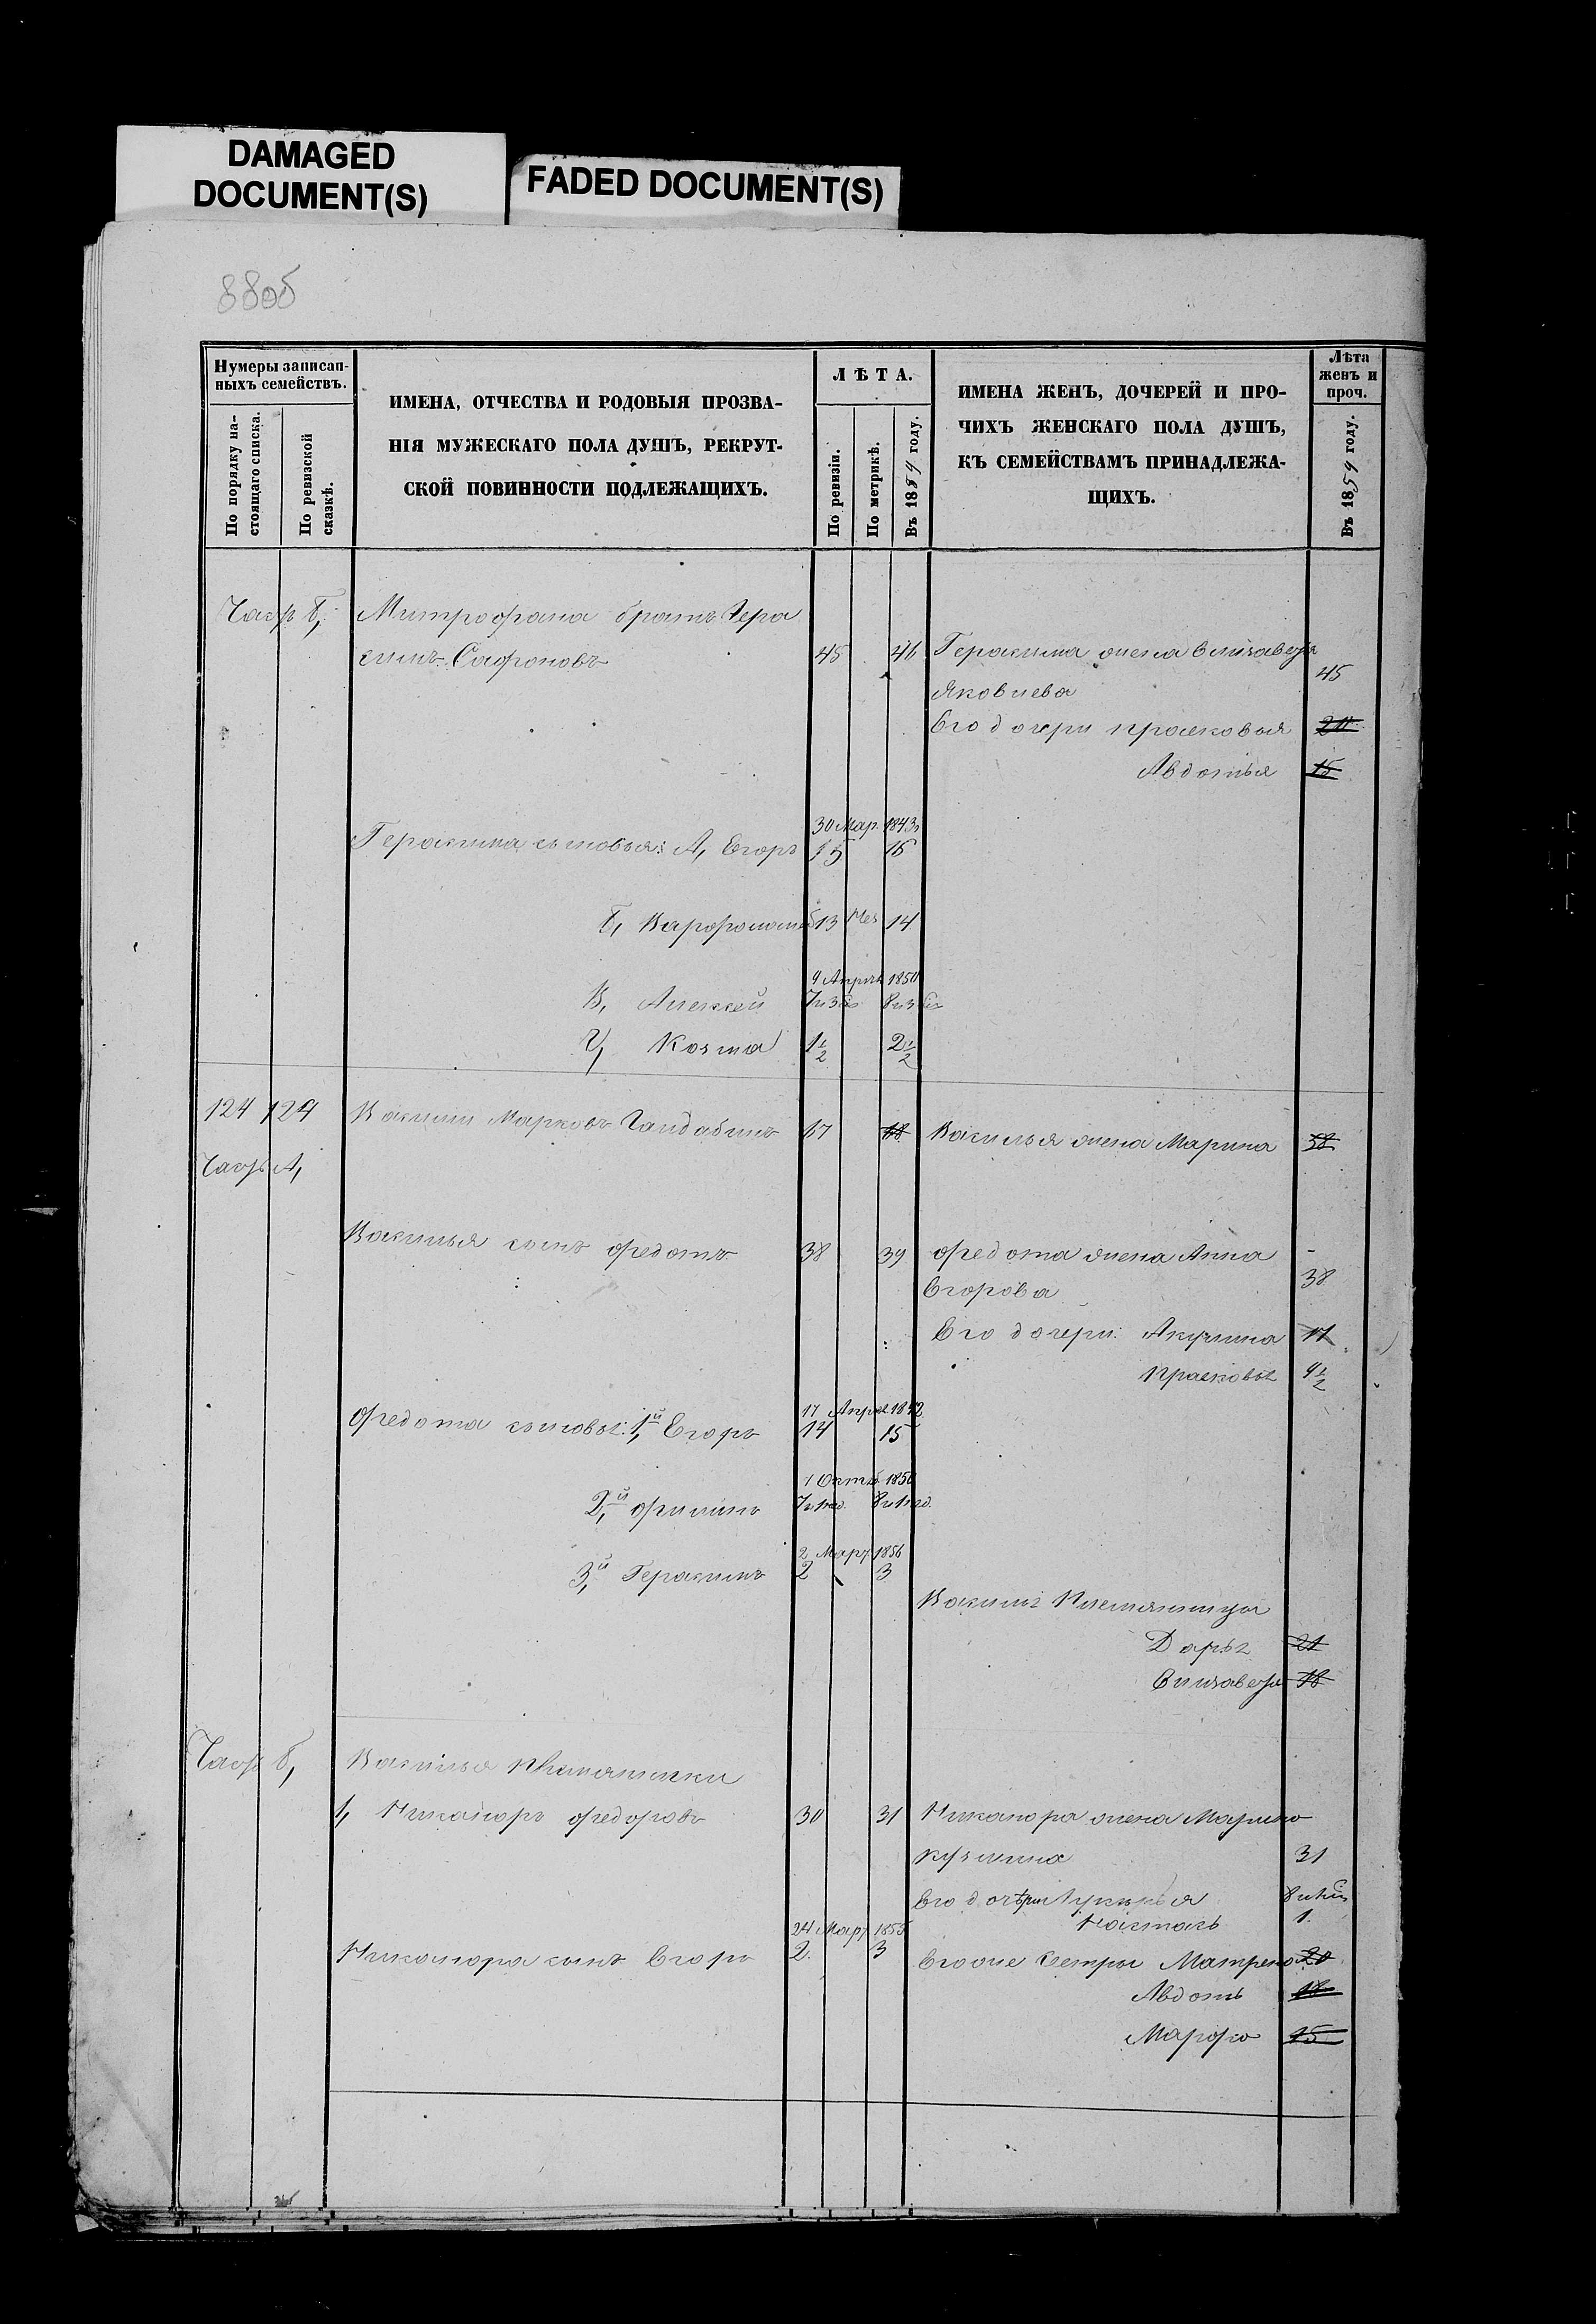 DAMAGED
DOCUMENT(S)
FADED DOCUMENT(S)
8805
Нумеры записан-
ныхъ семействъ.
По порядку на-
стоящаго списка.
По ревизской
сказкѣ.
ИМЕНА, ОТЧЕСТВА И РОДОВЫЯ ПРОЗВА-
НІЯ МУЖЕСКАГО ПОЛА ДУШЪ, РЕКРУТ-
СКОЙ ПОВИННОСТИ ПОДЛЕЖАЩИХЪ.
ЛѢТА.
По ревизіи.
По метрикѣ.
Въ 1859 году.
ИМЕНА ЖЕНЪ, ДОЧЕРЕЙ И ПРО-
ЧИХЪ ЖЕНСКАГО ПОЛА ДУШЪ,
КЪ СЕМЕЙСТВАМЪ ПРИНАДЛЕЖА-
ЩИХЪ.
Лѣта
женъ и
проч.
Въ 1859 году.
Митрофана братъ Гера
симъ Сафоновъ 45 46 Герасима жена Елизавета
Яковлева 45
Его дочери Прасковья 20
Авдотья 15
30 Мар. 1843
Герасима сыновья: А, Егоръ 15 16
Б, Варфоломей 13 14
9 Апрѣл 1850
В, Алексѣй
Г, Козма 1½ 2½
124 124 Василій Марковъ 67 68 Василья жена Марина 58
А,
Василья сынъ Федотъ 38 39 Федота жена Анна
Егорова 38
Его дочери: Акулина 11
Прасковья 4½
17 Апрѣл 1842
Федота сыновья: 1й Егоръ 14 15
1 Октяб. 1850
2й Филипъ
2 Март 1856
3й Герасимъ 2 3
Василья Племянницы
Дарья 21
Елизавета 18
Б, Василья Племянники
1, Никаноръ Федоровъ 30 31 Никанора жена Марина
Кузмина 31
Его дочери Лукерья
Настась 1.
24 Март 1855
Никанора сынъ Егоръ 2 3 Егоже Сестры Матрена 20
Авдоть 18
Марфа 15